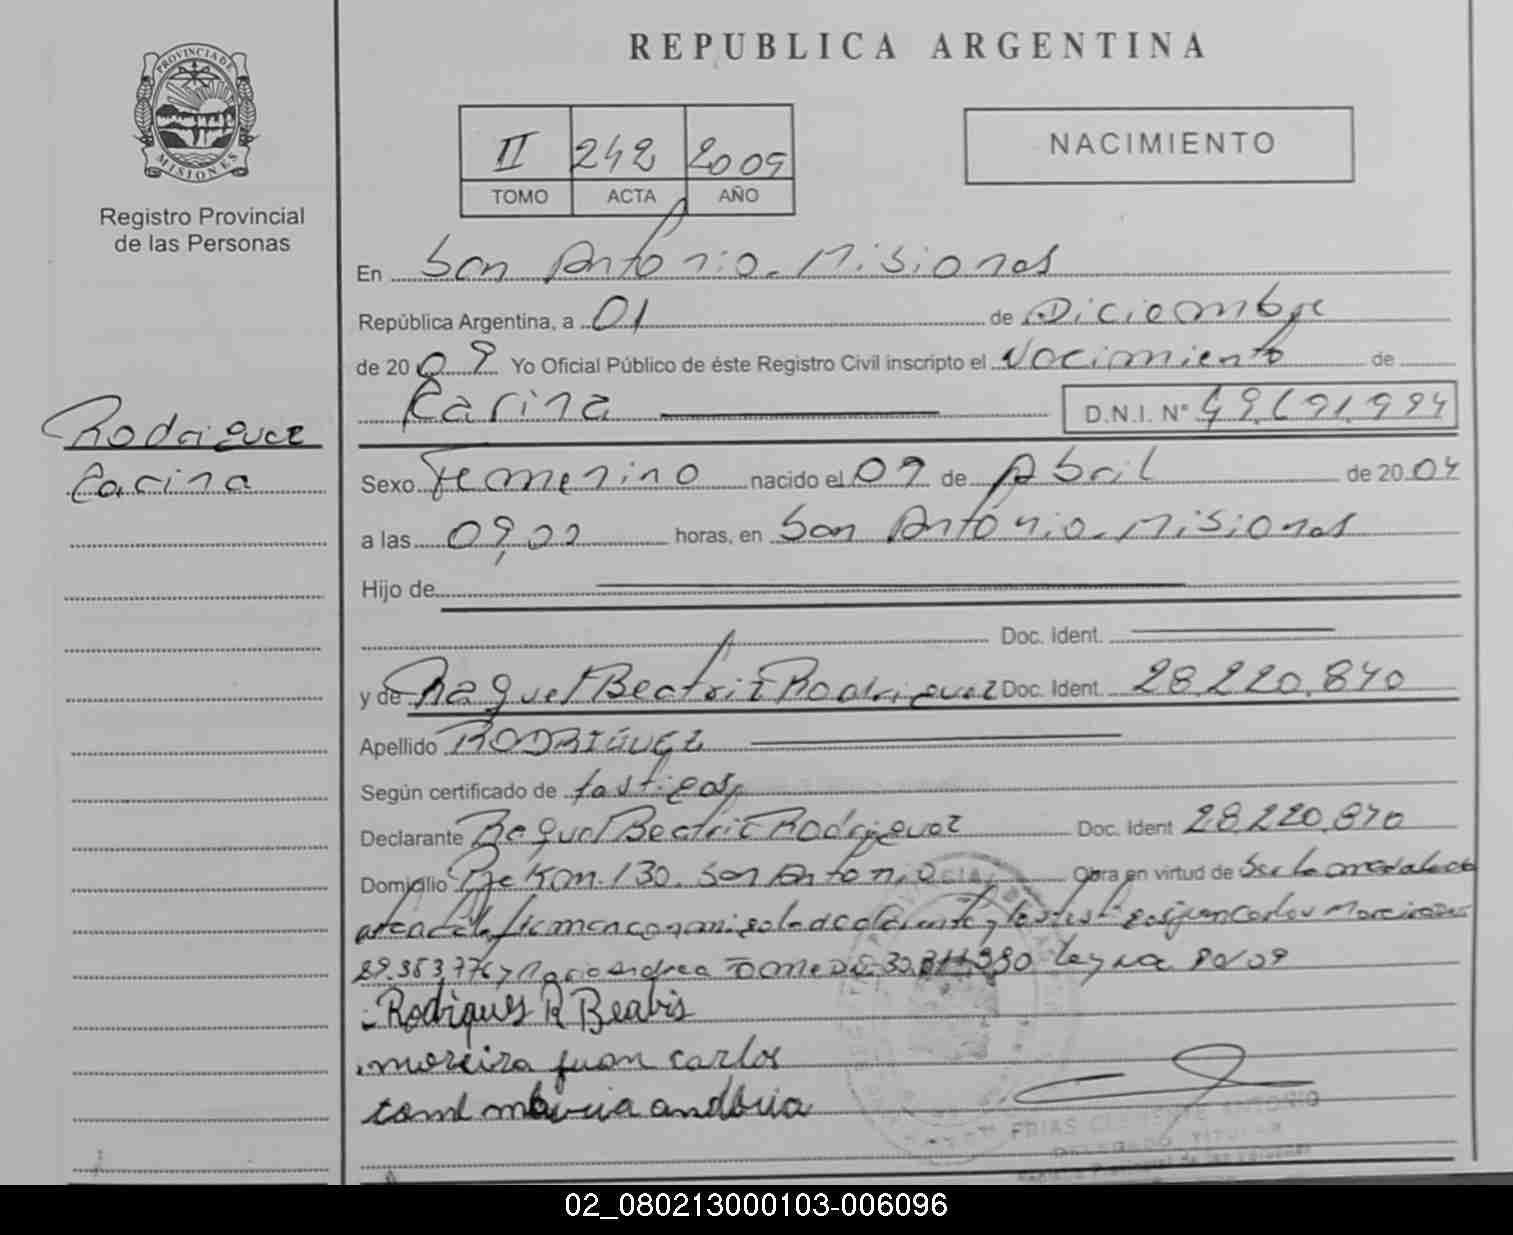 REPUBLICA ARGENTINA
PROVINCIA DE
MISIONES
Registro Provincial
de las Personas
II 242 2009
TOMO ACTA AÑO
NACIMIENTO
En San Antonio. Misiones
República Argentina, a 01 de Diciembre
de 2009 Yo Oficial Público de éste Registro Civil inscripto el Nacimiento de
Carina D.N.I. N° 49.691.994
Rodriguez
Carina
Sexo Femenino nacido el 09 de Abril de 2004
a las 09,00 horas, en San Antonio. Misiones
Hijo de
Doc. Ident.
y de Raquel Beatriz Rodriguez Doc. Ident. 28.220.840
Apellido RODRIGUEZ
Según certificado de testigos
Declarante Raquel Beatriz Rodriguez Doc. Ident 28.220.840
Domicilio Pje Km. 130. San Antonio Obra en virtud de Ser la madre
declarante y los testigos Juan Carlos Moreira
29.383.776 y Andrea Tome 30. Ley 09
Rodrigues R Beatris
moreira juan carlos
FRIAS CLEMENTE ANTONIO
DELEGADO TITULAR
Registro Provincial de las Personas
02_080213000103-006096